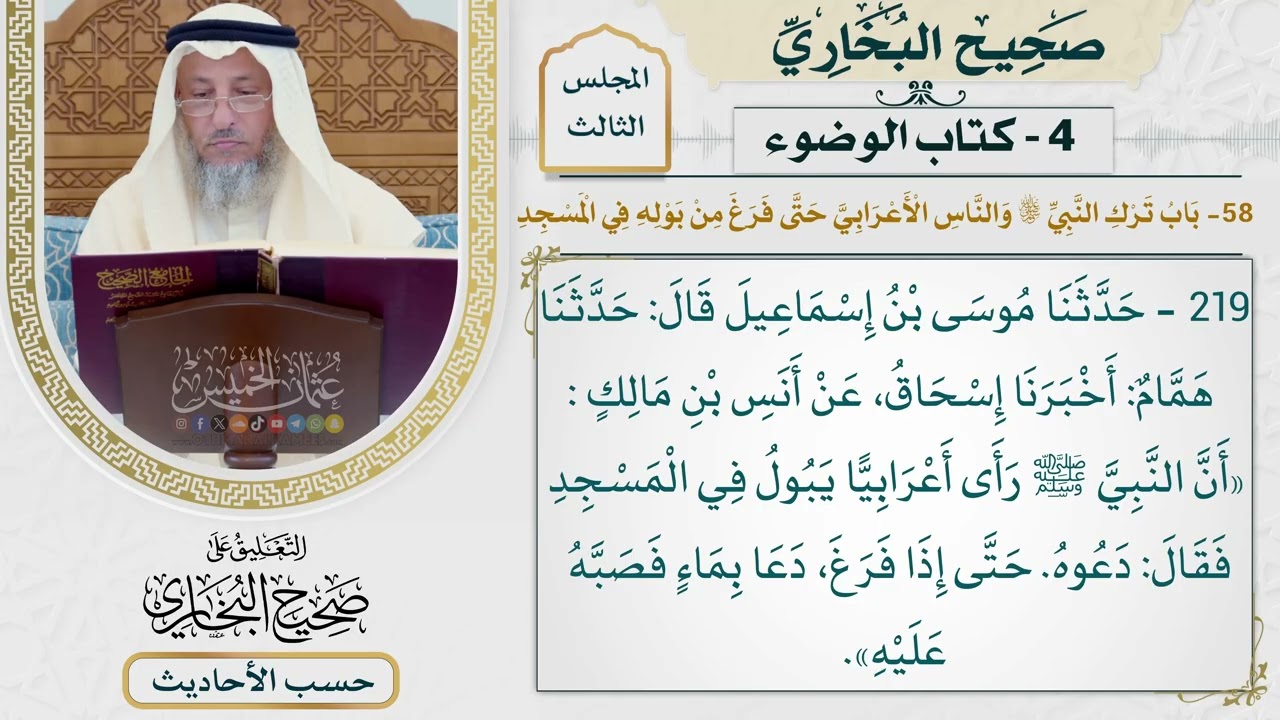 صَحِيح البُخَارِيِّ
4 - كتاب الوضوء
المجلس
الثالث
58- بَابُ تَرْكِ النَّبِيِّ ﷺ وَالنَّاسِ الْأَعْرَابِيَّ حَتَّى فَرَغَ مِنْ بَوْلِهِ فِي الْمَسْجِدِ
219 - حَدَّثَنَا مُوسَى بْنُ إِسْمَاعِيلَ قَالَ: حَدَّثَنَا
هَمَّامٌ: أَخْبَرَنَا إِسْحَاقُ، عَنْ أَنَسِ بْنِ مَالِكٍ :
«أَنَّ النَّبِيَّ ﷺ رَأَى أَعْرَابِيًّا يَبُولُ فِي الْمَسْجِدِ
فَقَالَ: دَعُوهُ. حَتَّى إِذَا فَرَغَ، دَعَا بِمَاءٍ فَصَبَّهُ
عَلَيْهِ».
الجامع الصحيح
عثمان الخميس
التَّعْلِيقُ عَلَى
صَحِيحِ الْبُخَارِي
حسب الأحاديث